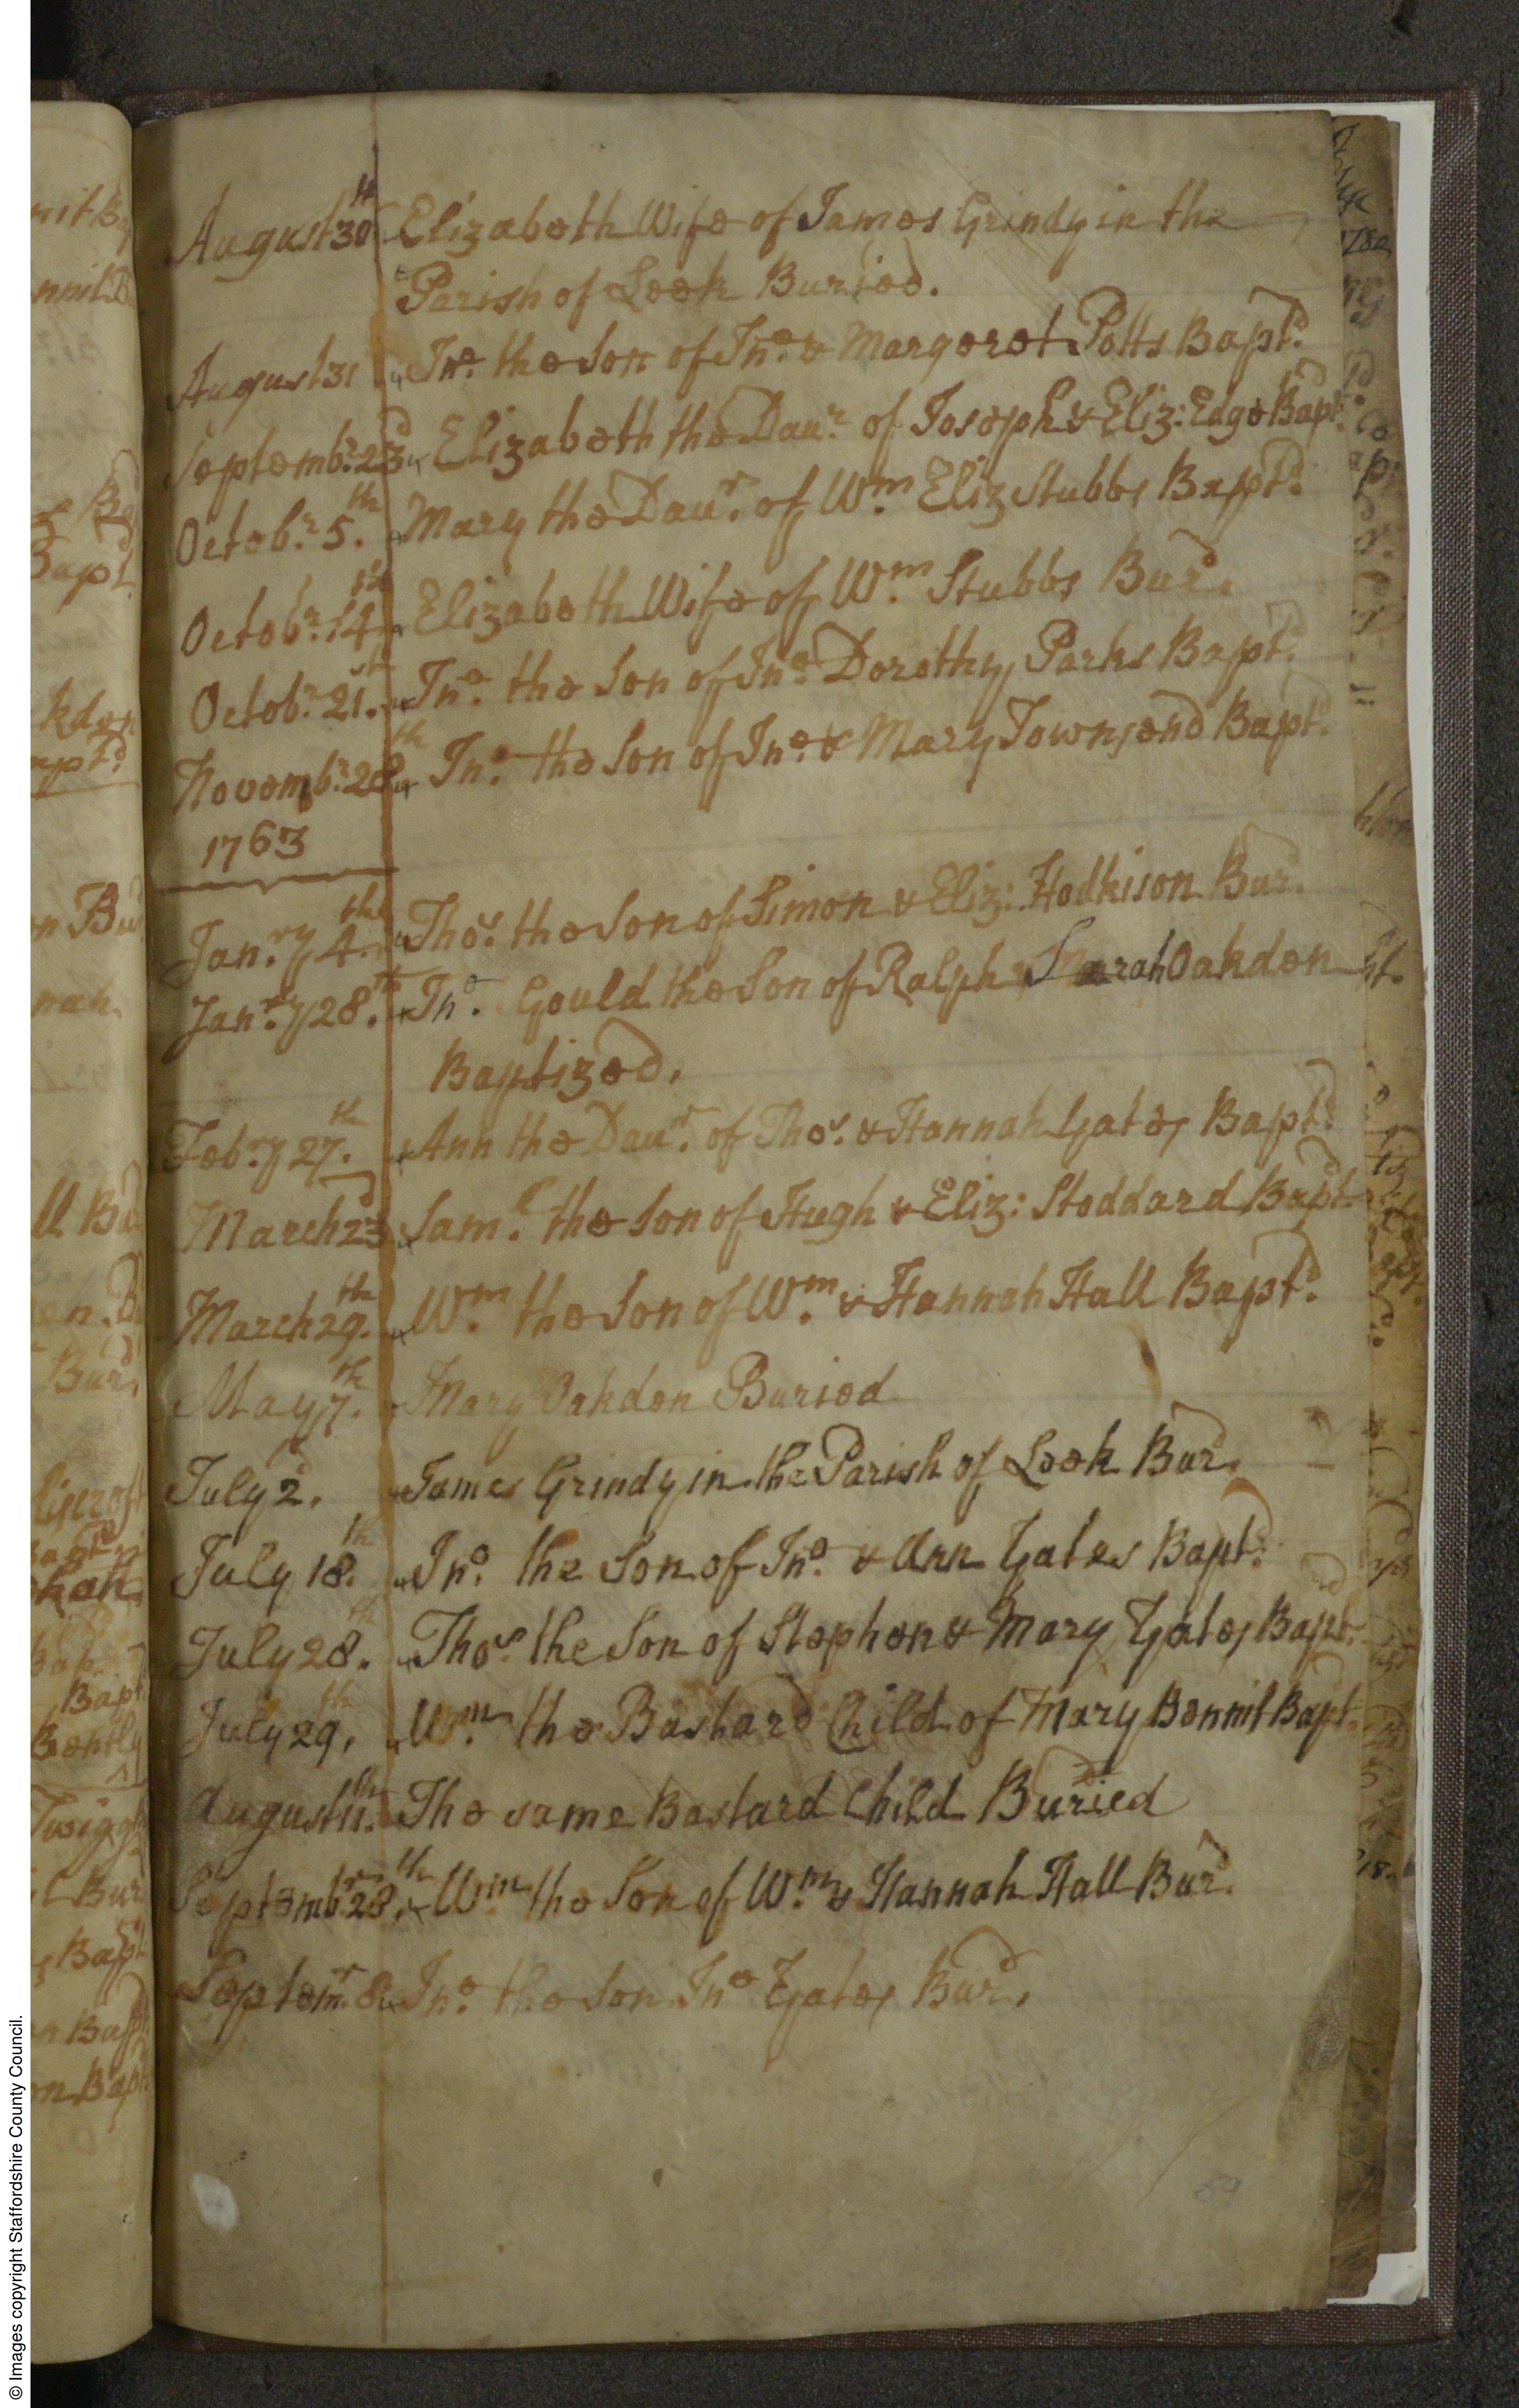 August 30th Elizabeth Wife of James Grindy in the
Parish of Leek Buried.
August 31 Jno. the Son of Jno. & Margeret Potts Bapt.d
Septembr. 23d Elizabeth the Daur. of Joseph & Eliz: Edge Bapt.d
Octobr. 5.th Mary the Daur. of Wm. Eliz Stubbs Bapt.d
Octobr. 14th Elizabeth Wife of Wm. Stubbs Burd.
Octobr. 21.st Jno. the Son of Jno. Dorothy Parks Bapt.d
Novembr. 28th Jno. the Son of Jno. & Mary Townsend Bapt.d
1763
Jan.ry 4.th Thos. the Son of Simon & Eliz: Hodkison Burd.
Jan.ry 28.th Jno. Gould the Son of Ralph Sarah Oakden
Baptized.
Feb.ry 27.th Ann the Daur. of Thos. & Hannah Gates Bapt.d
March 23d Sam.l the Son of Hugh & Eliz: Stoddard Bapt.d
March 29.th Wm. the Son of Wm. & Hannah Hall Bapt.d
May 7.th Mary Oakden Buried
July 2.d James Grindy in the Parish of Leek Burd.
July 18.th Jno. the Son of Jno. & Ann Gates Bapt.d
July 28.th Thos. the Son of Stephen & Mary Gates Bapt.d
July 29.th Wm. the Bastard Child of Mary Bennit Bapt.d
August 11.th The same Bastard Child Buried
Septembr. 28.th Wm. the Son of Wm. & Hannah Hall Burd.
Septemr. Jno. the Son Jno Gates Burd.
59
© Images copyright Staffordshire County Council.